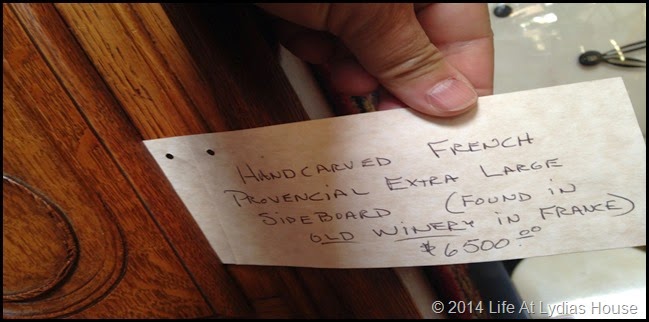 HANDCARVED FRENCH
PROVENCIAL EXTRA LARGE
SIDEBOARD (FOUND IN
OLD WINERY IN FRANCE)
$6500.00
© 2014 Life At Lydias House